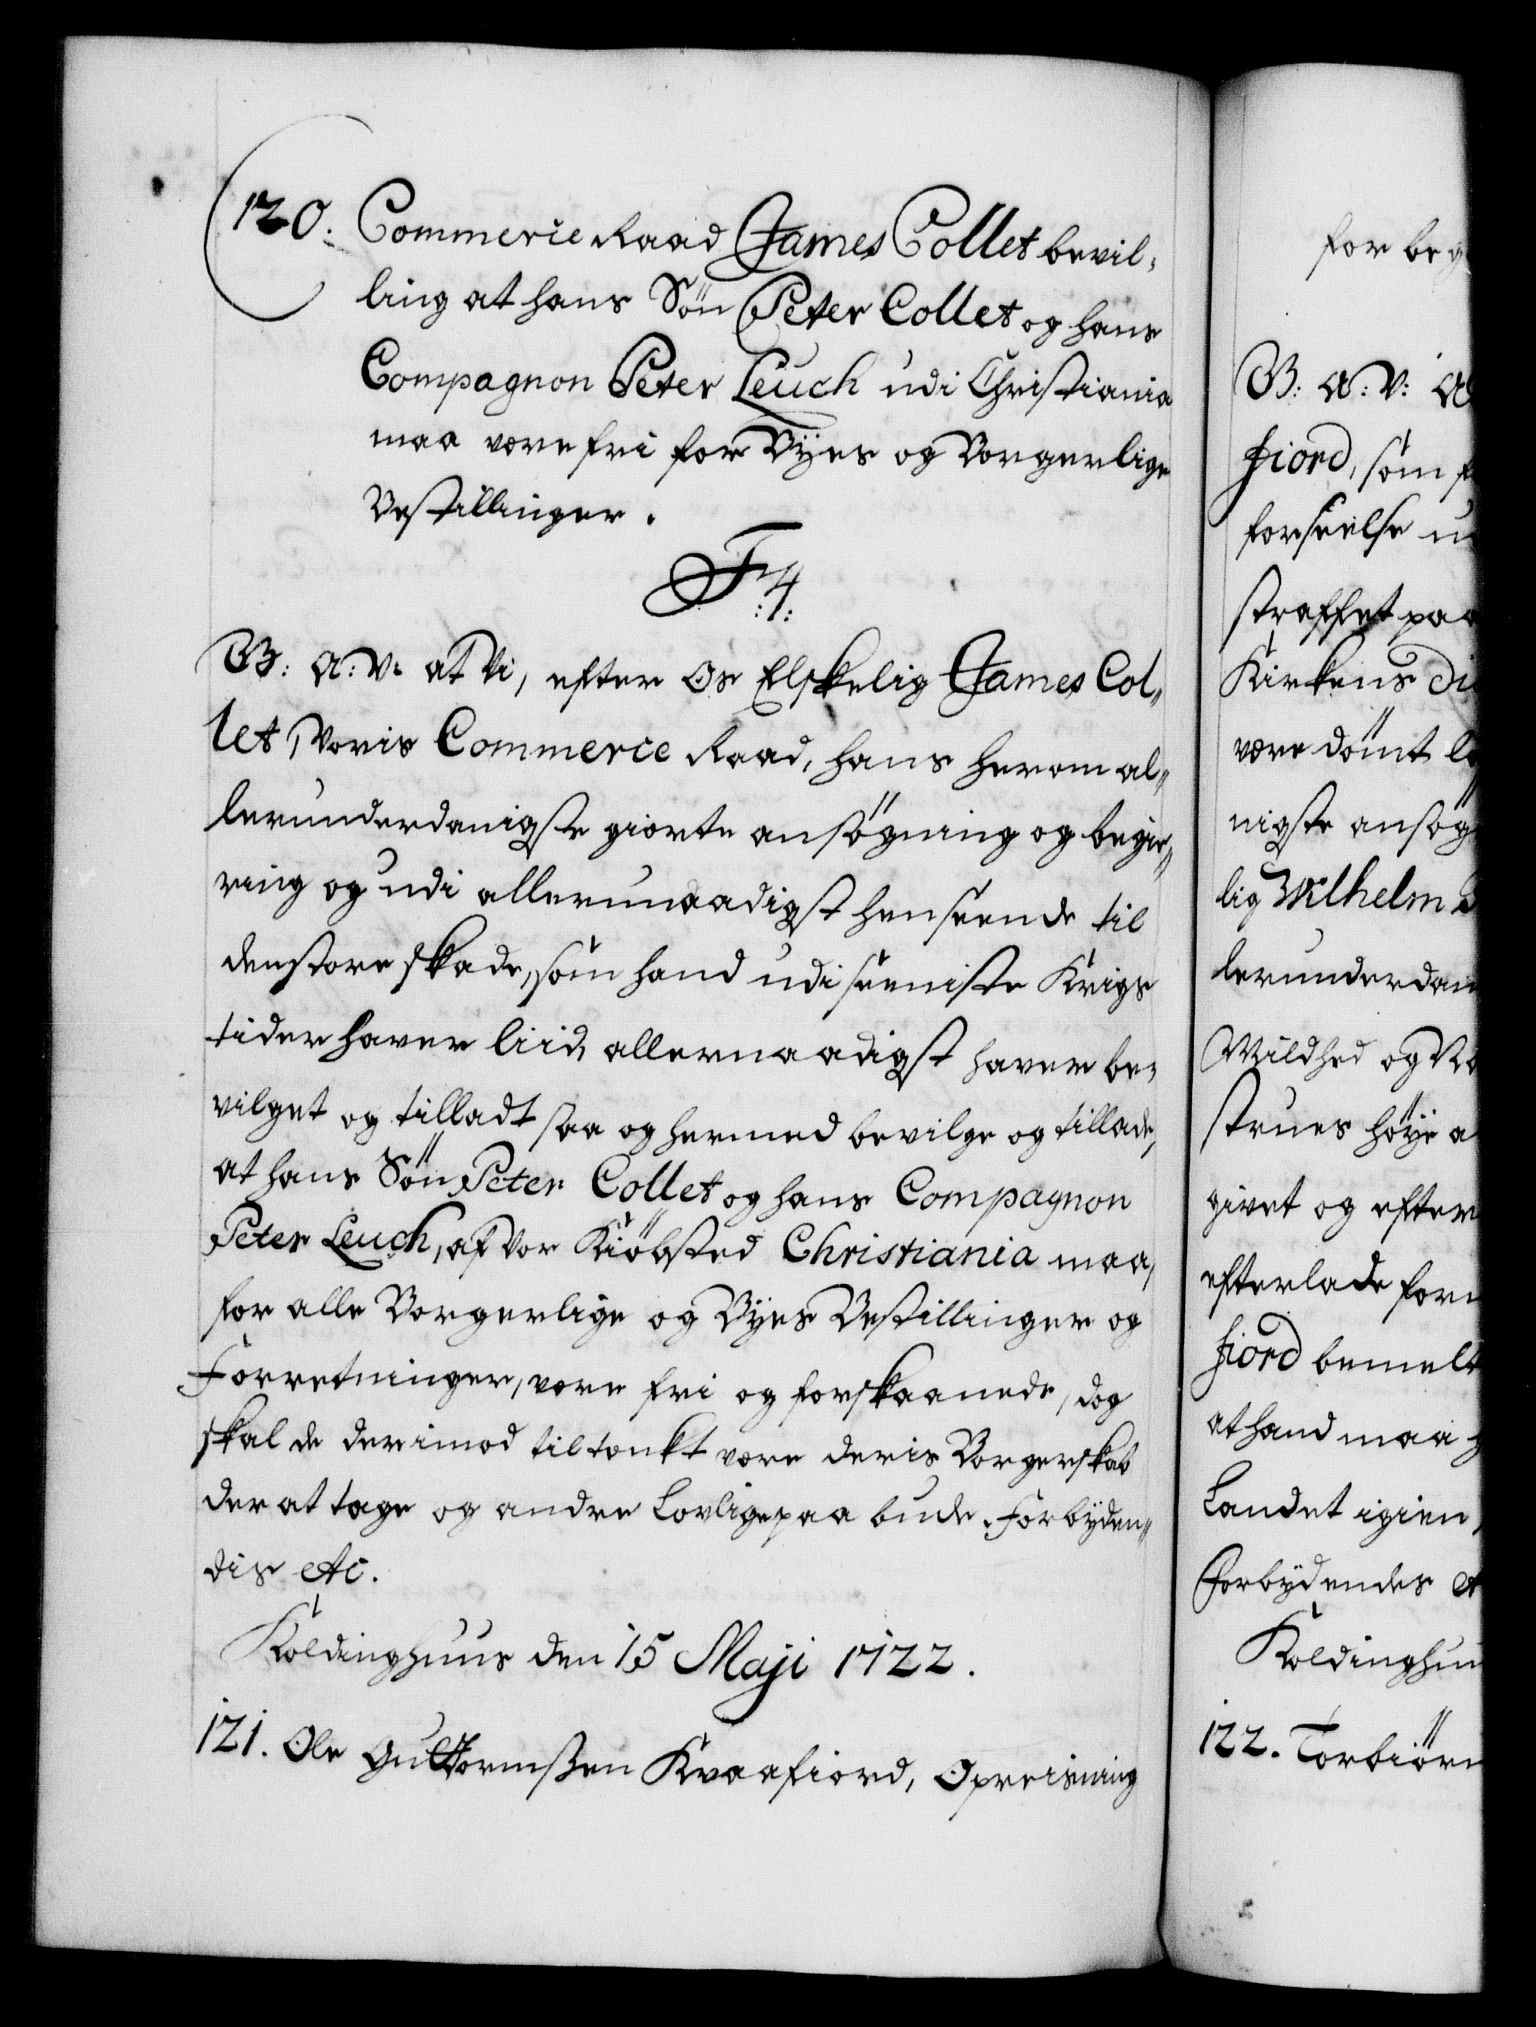 120. Commerce Raad James Collet bevil-
ling at hans Sön Peter Collet og hans
Compagnon Peter Leuch udi Christiania
maa være fri for Byes og Borgerlige
Bestillinger.
F:4:
G: A: V: at Vi, efter Os Elskelig James Col-
let, Voris Commerce Raad, hans herom al-
lerunderdanigste giorte ansögning og begie-
ring og udi allernaadigst henseende til
den store skade, som hand udi seeniste Krigs
tider haver liid, allernaadigst haver be-
vilget og tilladt saa og hermed bevilge og tillade,
at hans Sön Peter Collet og hans Compagnon
Peter Leuch, af Vor Kiöbsted Christiania maa,
for alle Borgerlige og Byes Bestillinger og
Forretninger, være fri og forskaanede, dog
skal de derimod tiltænkt være deris Borgerskab
der at tage og andre Lovlige paa bude. Forbyden-
dis etc.
Koldinghuus den 15 Maji 1722.
121. Ole Guttormßen Kvaafiord, Opreisning
for beg
G: A: V: A
fiord, som f
forseelse u
straffet paa
Kirkens Di
være dömt l
nigste ansög
lig Wilhelm
lerunderdan
Mildhed og Na
strues höye a
givet og efter
efterlade for
fiord bemelt
at hand maa
Landet igien
Forbydendes et
Koldinghuu
122. Torbiörn